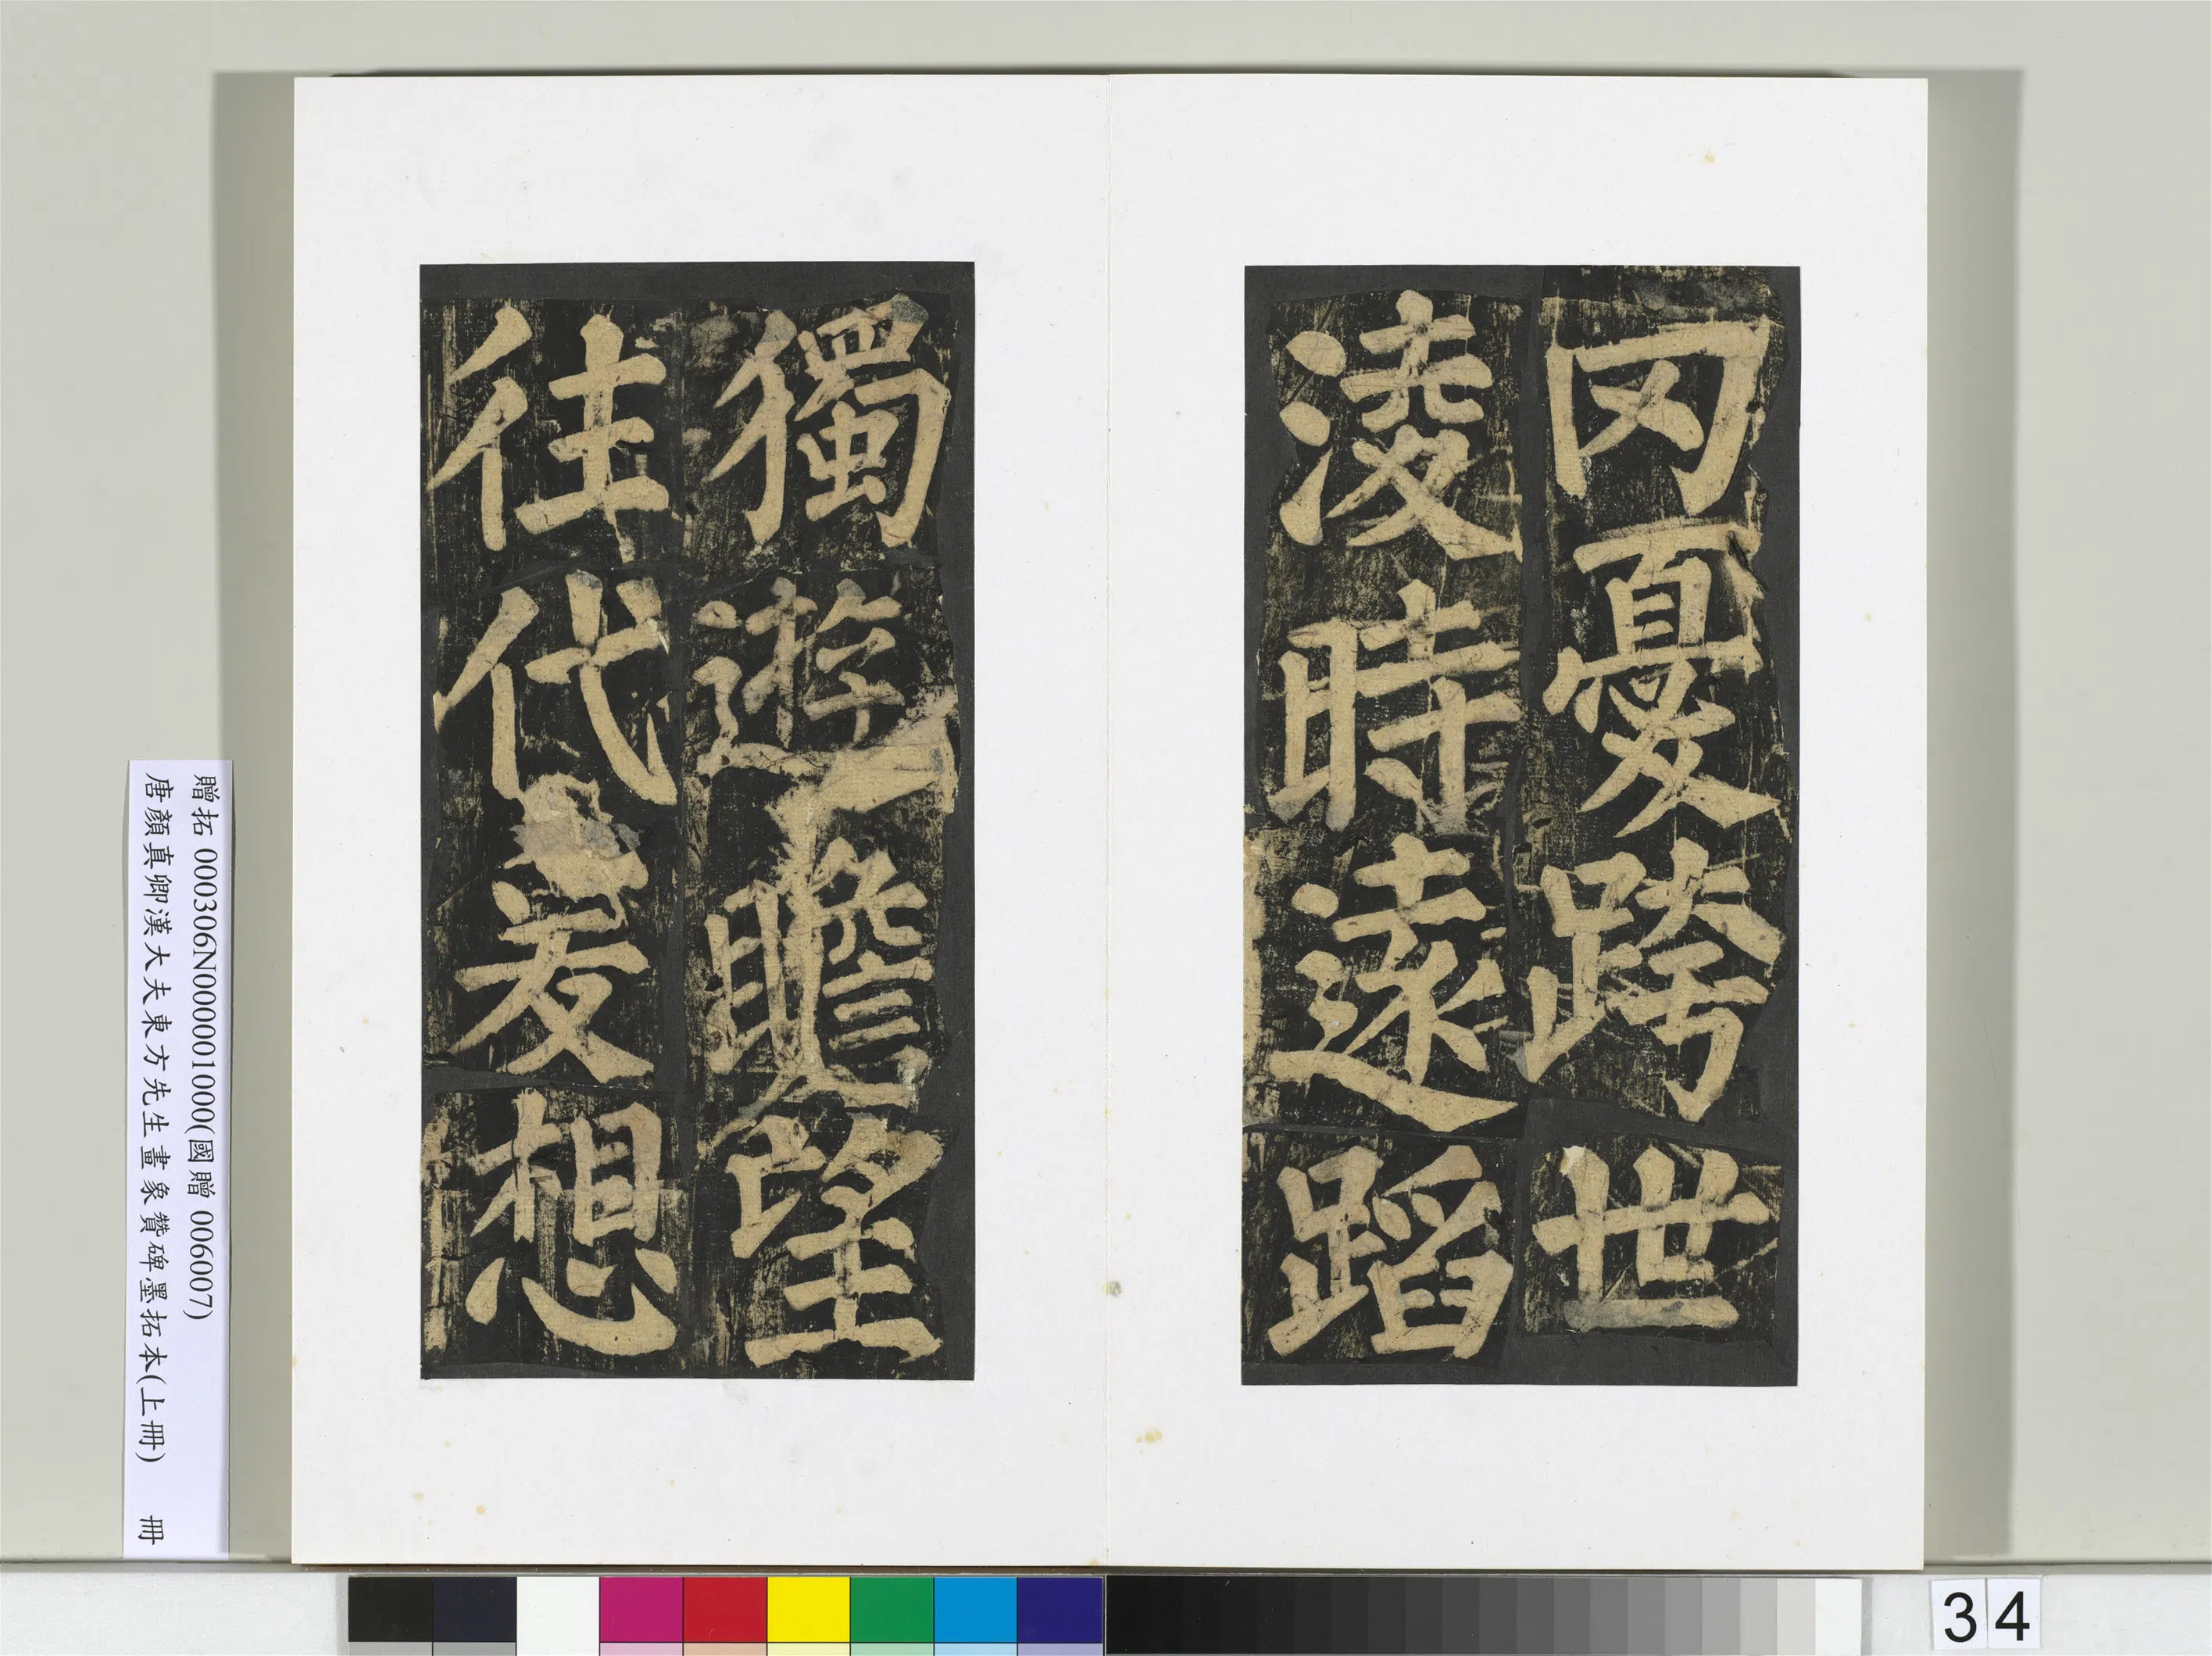 罔憂跨世
淩時遠蹈
獨遊瞻望
往代爰想
贈拓 000306N000001000(國贈 006007)
唐顏真卿漢大夫東方先生畫象贊碑墨拓本(上冊) 冊
34